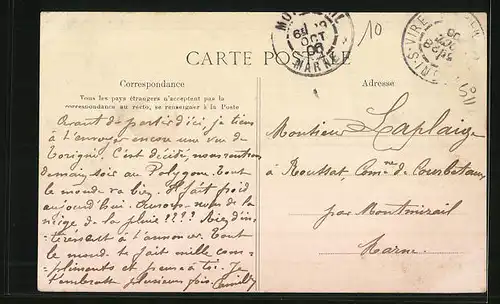 CARTE POSTALE
Correspondance
Tous les pays étrangers n'acceptent pas la
correspondance au recto, se renseigner à la Poste
Adresse
10
OCT
06
MARNE
Avant de partir d'ici, je tiens
à t'envoyer encore une vue de
Torigni. C'est décidé, nous rentrons
demain soir au Polygone. Tout
le monde va bien. Il fait froid
aujourd'hui. Aurons-nous de la
neige de la pluie????? Rien d'in-
téressant à t'annoncer. Tout
le monde te fait mille com-
pliments et pense à toi. Je
t'embrasse plusieurs fois. Camille
Monsieur Laplaige
à Roussat, Comne de Courbetaux,
par Montmirail
Marne